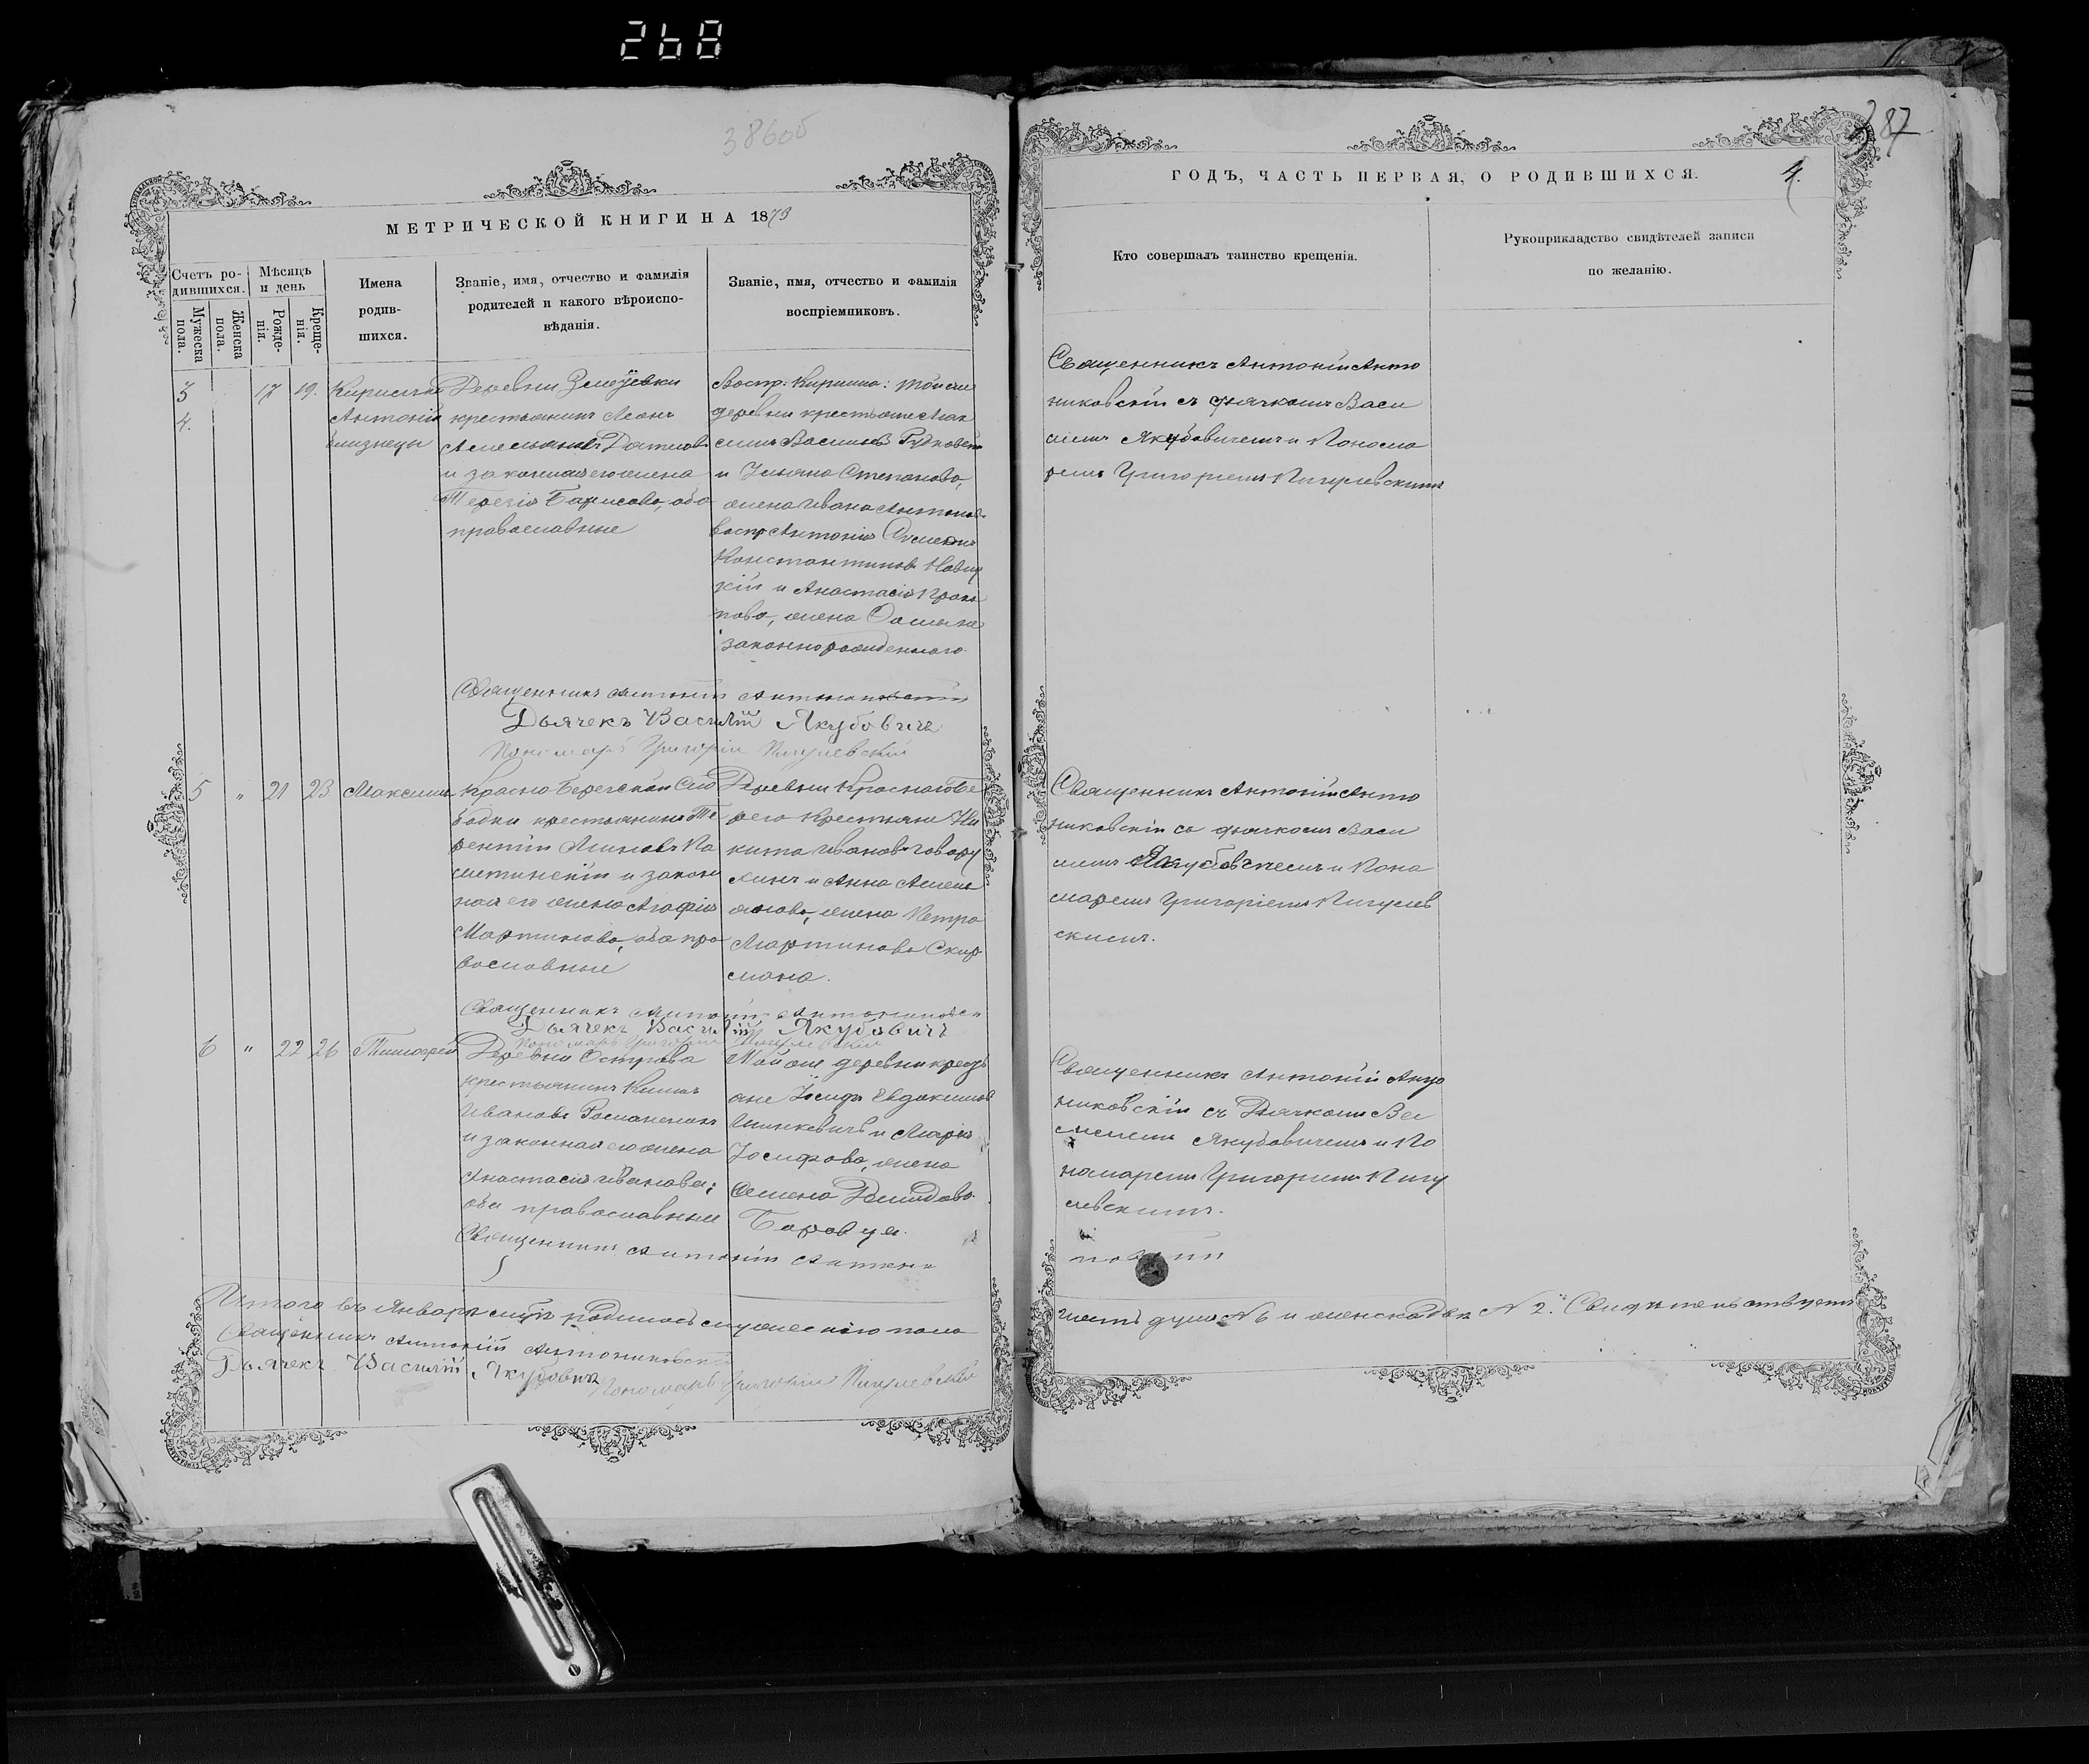 268
38605
МЕТРИЧЕСКОЙ КНИГИ НА 1873
Счетъ ро-
дившихся.
Мѣсяцъ
и день
Мужеска
пола.
Женска
пола.
Рожде-
нія.
Креще-
нія.
Имена
родив-
шихся.
Званіе, имя, отчество и фамилія
родителей и какого вѣроиспо-
вѣданія.
Званіе, имя, отчество и фамилія
воспріемниковъ.
3 17 19.
4.
Антоній
близнецы
Деревни
крестьянинъ
и законная его жена
Борисова, оба
православные
Воспр: Кирилла: той же
деревни крестьяне Мак
симъ Васильевъ
и Ульяна Степанова,
жена Ивана Антонов
воспр Антонія
Константиновъ Новиц
кій и Анастасія
пова, жена Фомы не
законнорожденнаго
Священникъ Антоній
Дьячекъ Василій Якубовичъ
Пономарь Григорій Пигулевскій
5 " 21 23 Максимъ
Красно-Берегской Сло
бодки крестьянинъ Те
рентій
и закон
ная его жена Агафія
Мартинова, оба пра
вославные
Деревни Краснаго Бе
рега Крестьяне Ни
кита Ивановъ
и Анна
жена Петра
Мартинова Скир
мана.
Священникъ
Дьячекъ Василій Якубовичъ
Пономарь Григорій Пигулевскій
6 " 22 26 Тимофей
Деревни Острова
крестьянинъ
Ивановъ Романенко
и законная его жена
Анастасія Иванова;
оба православные
Той же деревни кресть
яне Іосифъ Евдокимовъ
и Марія
Іосифова, жена
Семена Демидова
Боровца.
Священникъ Антоній
Итого въ Январѣ мѣсяцѣ родилось мужескаго пола
Священникъ Антоній Антониковскій
Дьячекъ Василій Якубовичъ
Пономарь Григорій Пигулевскій
387
4.
ГОДЪ, ЧАСТЬ ПЕРВАЯ, О РОДИВШИХСЯ.
Кто совершалъ таинство крещенія.
Рукоприкладство свидѣтелей записи
по желанію.
Священникъ Антоній Анто
никовскій съ дьячкомъ Васи
ліемъ Якубовичемъ и Понома
ремъ Григоріемъ Пигулевскимъ
Священникъ Антоній Анто
никовскій съ дьячкомъ Васи
ліемъ Якубовичемъ и Поно
маремъ Григоріемъ Пигулев
скимъ.
Священникъ Антоній Анто
никовскій съ Дьячкомъ Ва
силіемъ Якубовичемъ и По
номаремъ Григоріемъ Пигу
левскимъ.
шесть душъ № 6 и женска двѣ № 2. Свидѣтельствуемъ